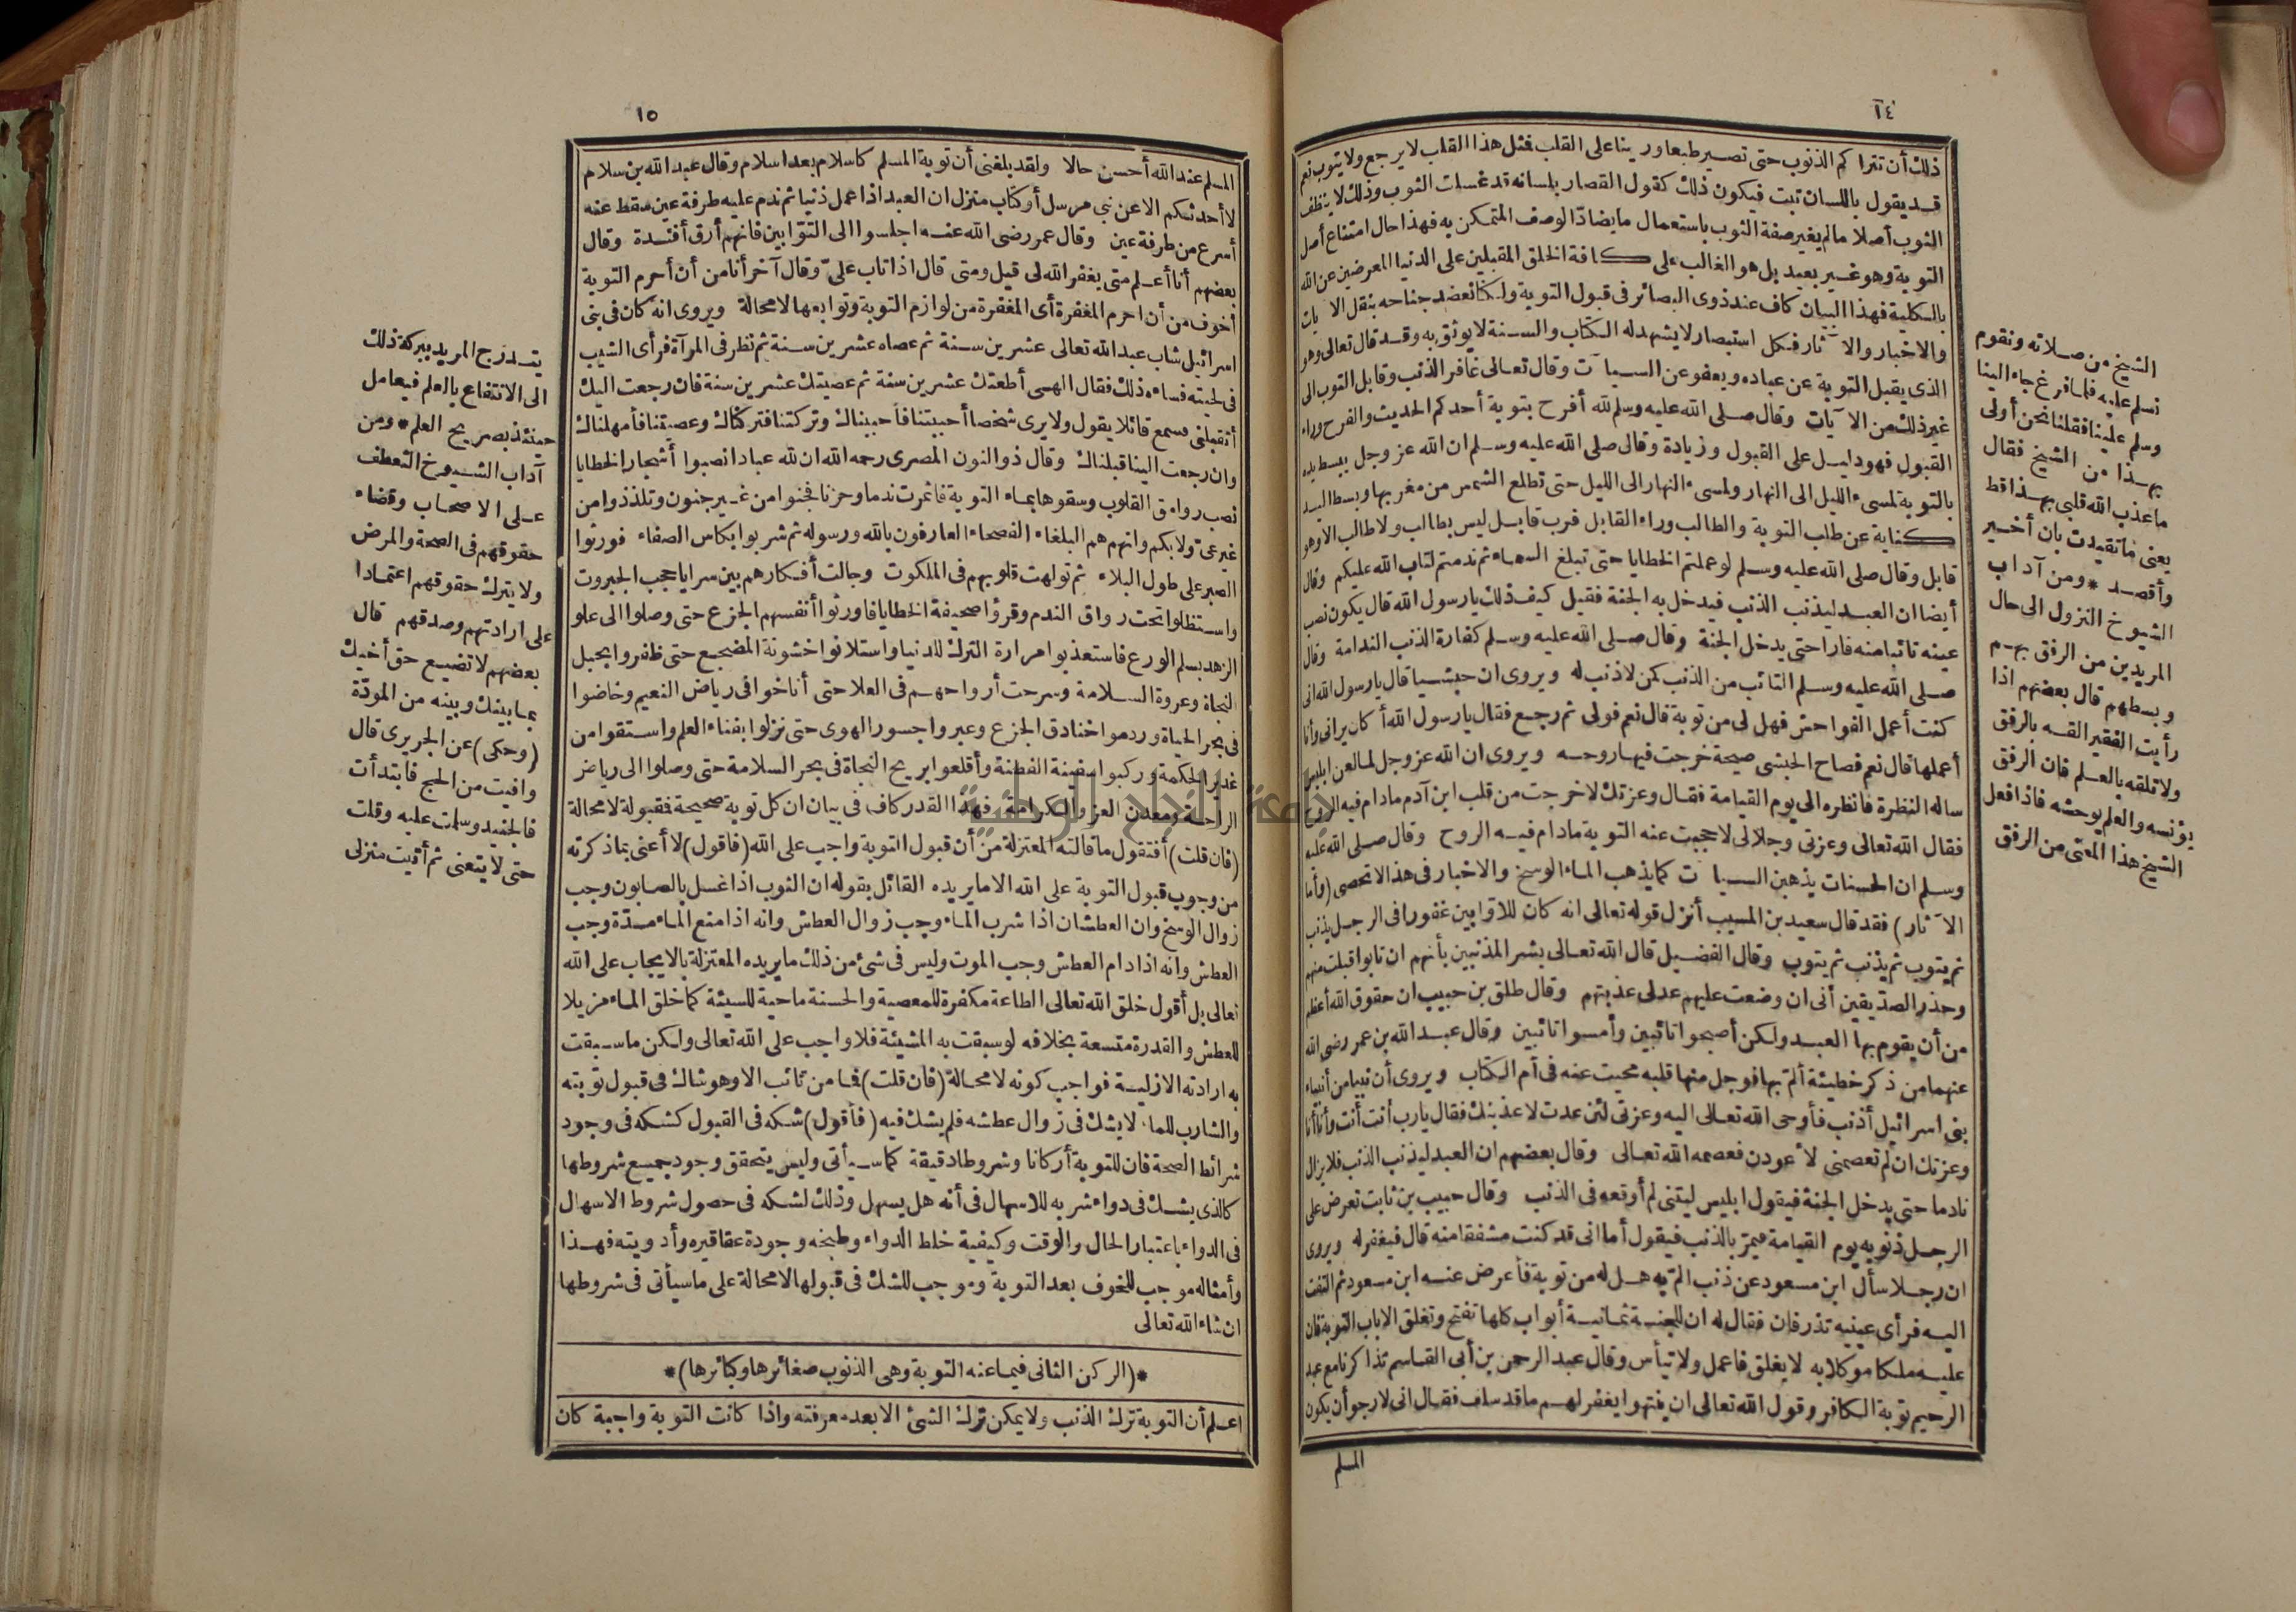 ١٤
ذلك أن تتراكم الذنوب حتى تصير طبعا ورينا على القلب فمثل هذا القلب لا يرجع ولا يتوب نعم
قد يقول باللسان تبت فيكون ذلك كقول القصار بلسانه قد غسلت الثوب وذلك لا ينظف
الثوب أصلا مالم يغير صفة الثوب باستعمال ما يضاد الوصف المتمكن به فهذا حال امتناع أصل
التوبة وهو غير بعيد بل هو الغالب على كافة الخلق المقبلين على الدنيا المعرضين عن الله
بالكلية فهذا البيان كاف عند ذوى البصائر فى قبول التوبة ولكنا نعضد جناحه بنقل الآيات
والاخبار والآثار فكل استبصار لا يشهد له الكتاب والسنة لا يوثق به وقد قال تعالى وهو
الذى يقبل التوبة عن عباده ويعفو عن السيآت وقال تعالى غافر الذنب وقابل التوب الى
غير ذلك من الآيات وقال صلى الله عليه وسلم لله أفرح بتوبة أحدكم الحديث والفرح وراء
القبول فهو دليل على القبول وزيادة وقال صلى الله عليه وسلم ان الله عز وجل يبسط يده
بالتوبة لمسىء الليل الى النهار ولمسىء النهار الى الليل حتى تطلع الشمس من مغربها وبسط اليد
كناية عن طلب التوبة والطالب وراء القابل فرب قابل ليس بطالب ولا طالب الا وهو
قابل وقال صلى الله عليه وسلم لو عملتم الخطايا حتى تبلغ السماء ثم ندمتم لتاب الله عليكم وقال
أيضا ان العبد ليذنب الذنب فيدخل به الجنة فقيل كيف ذلك يارسول الله قال يكون نصب
عينه تائبا منه فارا حتى يدخل الجنة وقال صلى الله عليه وسلم كفارة الذنب الندامة وقال
صلى الله عليه وسلم التائب من الذنب كمن لا ذنب له ويروى ان حبشيا قال يارسول الله انى
كنت أعمل الفواحش فهل لى من توبة قال نعم فولى ثم رجع فقال يارسول الله أكان يرانى وأنا
أعملها قال نعم فصاح الحبشى صيحة خرجت فيها روحه ويروى ان الله عز وجل لما لعن ابليس
ساله النظرة فانظره الى يوم القيامة فقال وعزتك لا خرجت من قلب ابن آدم مادام فيه الروح
فقال الله تعالى وعزتى وجلالى لا حجبت عنه التوبة مادام فيه الروح وقال صلى الله عليه
وسلم ان الحسنات يذهبن السيآت كما يذهب الماء الوسخ والاخبار فى هذا لاتحصى (وأما
الآثار) فقد قال سعيد بن المسيب أنزل قوله تعالى انه كان للاوّابين غفورا فى الرجل يذنب
ثم يتوب ثم يذنب ثم يتوب وقال الفضيل قال الله تعالى بشر المذنبين بأنهم ان تابوا قبلت منهم
وحذر الصديقين أنى ان وضعت عليهم عدلى عذبتهم وقال طلق بن حبيب ان حقوق الله أعظم
من أن يقوم بها العبد ولكن أصبحوا تائبين وأمسوا تائبين وقال عبد الله بن عمر رضى الله
عنهما من ذكر خطيئة ألم بها فوجل منها قلبه محيت عنه فى أم الكتاب ويروى أن نبيا من أنبياء
بنى اسرائيل أذنب فأوحى الله تعالى اليه وعزتى لئن عدت لاعذبنك فقال يارب أنت أنت وأنا أنا
وعزتك ان لم تعصمنى لأعودن فعصمه الله تعالى وقال بعضهم ان العبد ليذنب الذنب فلا يزال
نادما حتى يدخل الجنة فيقول ابليس ليتنى لم أوقعه فى الذنب وقال حبيب بن ثابت تعرض على
الرجل ذنوبه يوم القيامة فيمرّ بالذنب فيقول أما انى قد كنت مشفقا منه قال فيغفر له ويروى
ان رجلا سأل ابن مسعود عن ذنب ألمّ به هل له من توبة فأعرض عنه ابن مسعود ثم التفت
اليه فرأى عينيه تذرفان فقال له ان للجنة ثمانية أبواب كلها تفتح وتغلق الا باب التوبة فان
عليه ملكا موكلا به لا يغلق فاعمل ولا تيأس وقال عبد الرحمن بن أبى القاسم تذاكرنا مع عبد
الرحيم توبة الكافر وقول الله تعالى ان ينتهوا يغفر لهم ما قد سلف فقال انى لارجو أن يكون
المسلم
الشيخ من صلاته ونقوم
نسلم عليه فلما فرغ جاء الينا
وسلم علينا فقلنا نحن أولى
بهذا من الشيخ فقال
ما عذب الله قلبى بهذا قط
يعنى ما تقيدت بان أحترم
وأقصد * ومن آداب
الشيوخ النزول الى حال
المريدين من الرفق بهم
وبسطهم قال بعضهم اذا
رأيت الفقير القه بالرفق
ولا تلقه بالعلم فان الرفق
يؤنسه والعلم يوحشه فاذا فعل
الشيخ هذا المعنى من الرفق
١٥
المسلم عند الله أحسن حالا ولقد بلغنى أن توبة المسلم كاسلام بعد اسلام وقال عبد الله بن سلام
لا أحدثكم الا عن نبى مرسل أو كتاب منزل ان العبد اذا عمل ذنبا ثم ندم عليه طرفة عين سقط عنه
أسرع من طرفة عين وقال عمر رضى الله عنه اجلسوا الى التوّابين فانهم أرق أفئدة وقال
بعضهم أنا أعلم متى يغفر الله لى قيل ومتى قال اذا تاب علىّ وقال آخر أنا من أن أحرم التوبة
أخوف من أن احرم المغفرة أى المغفرة من لوازم التوبة وتوابعها لا محالة ويروى انه كان فى بنى
اسرائيل شاب عبد الله تعالى عشرين سنة ثم عصاه عشرين سنة ثم نظر فى المرآة فرأى الشيب
فى لحيته فساءه ذلك فقال الهى أطعتك عشرين سنة ثم عصيتك عشرين سنة فان رجعت اليك
أتقبلنى فسمع قائلا يقول ولا يرى شخصا أحببتنا فأحببناك وتركتنا فتركناك وعصيتنا فأمهلناك
وان رجعت الينا قبلناك وقال ذو النون المصرى رحمه الله ان لله عبادا نصبوا أشجار الخطايا
نصب روامق القلوب وسقوها بماء التوبة فاثمرت ندما وحزنا فجنوا من غير جنون وتلذذوا من
غير عىّ ولا بكم وانهم هم البلغاء الفصحاء العارفون بالله ورسوله ثم شربوا بكاس الصفاء فورثوا
الصبر على طول البلاء ثم تولهت قلوبهم فى الملكوت وجالت أفكارهم بين سرايا حجب الجبروت
واستظلوا تحت رواق الندم وقرؤا صحيفة الخطايا فاورثوا أنفسهم الجزع حتى وصلوا الى علو
الزهد بسلم الورع فاستعذبوا مرارة الترك للدنيا واستلانوا خشونة المضجع حتى ظفروا بحبل
النجاة وعروة السلامة وسرحت أرواحهم فى العلا حتى أناخوا فى رياض النعيم وخاضوا
فى بحر الحياة وردموا خنادق الجزع وعبروا جسور الهوى حتى نزلوا بفناء العلم واستقوا من
غدير الحكمة وركبوا سفينة الفطنة وأقلعوا بريح النجاة فى بحر السلامة حتى وصلوا الى رياض
الراحة ومعدن العز والكرامة فهذا القدر كاف فى بيان ان كل توبة صحيحة فمقبولة لا محالة
(فان قلت) أفتقول ما قالته المعتزلة من أن قبول التوبة واجب على الله (فاقول) لا أعنى بما ذكرته
من وجوب قبول التوبة على الله الا ما يريده القائل بقوله ان الثوب اذا غسل بالصابون وجب
زوال الوسخ وان العطشان اذا شرب الماء وجب زوال العطش وانه اذا منع الماء مدّة وجب
العطش وانه اذا دام العطش وجب الموت وليس فى شئ من ذلك ما يريده المعتزلة بالايجاب على الله
تعالى بل أقول خلق الله تعالى الطاعة مكفرة للمعصية والحسنة ماحية للسيئة كما خلق الماء مزيلا
للعطش والقدرة متسعة بخلافه لو سبقت به المشيئة فلا واجب على الله تعالى ولكن ما سبقت
به ارادته الازلية فواجب كونه لا محالة (فان قلت) فما من تائب الا وهو شاك فى قبول توبته
والشارب للماء لا يشك فى زوال عطشه فلم يشك فيه (فأقول) شكه فى القبول كشكه فى وجود
شرائط الصحة فان للتوبة أركانا وشروطا دقيقة كما سيأتى وليس يتحقق وجود جميع شروطها
كالذى يشك فى دواء شربه للاسهال فى أنه هل يسهل وذلك لشكه فى حصول شروط الاسهال
فى الدواء باعتبار الحال والوقت وكيفية خلط الدواء وطبخه وجودة عقاقيره وأدويته فهذا
وأمثاله موجب للخوف بعد التوبة وموجب للشك فى قبولها لا محالة على ما سيأتى فى شروطها
ان شاء الله تعالى
*(الركن الثانى فيما عنه التوبة وهى الذنوب صغائرها وكبائرها)*
اعلم أن التوبة ترك الذنب ولا يمكن ترك الشئ الا بعد معرفته واذا كانت التوبة واجبة كان
يتدرج المريد ببركة ذلك
الى الانتفاع بالعلم فيعامل
حينئذ بصريح العلم * ومن
آداب الشيوخ التعطف
على الاصحاب وقضاء
حقوقهم فى الصحة والمرض
ولا يترك حقوقهم اعتمادا
على ارادتهم وصدقهم قال
بعضهم لا تضيع حق أخيك
بما بينك وبينه من المودّة
(وحكى) عن الجريرى قال
وافيت من الحج فابتدأت
بالجنيد وسلمت عليه وقلت
حتى لا يتعنى ثم أتيت منزلى
جامعة النجاح الوطنية